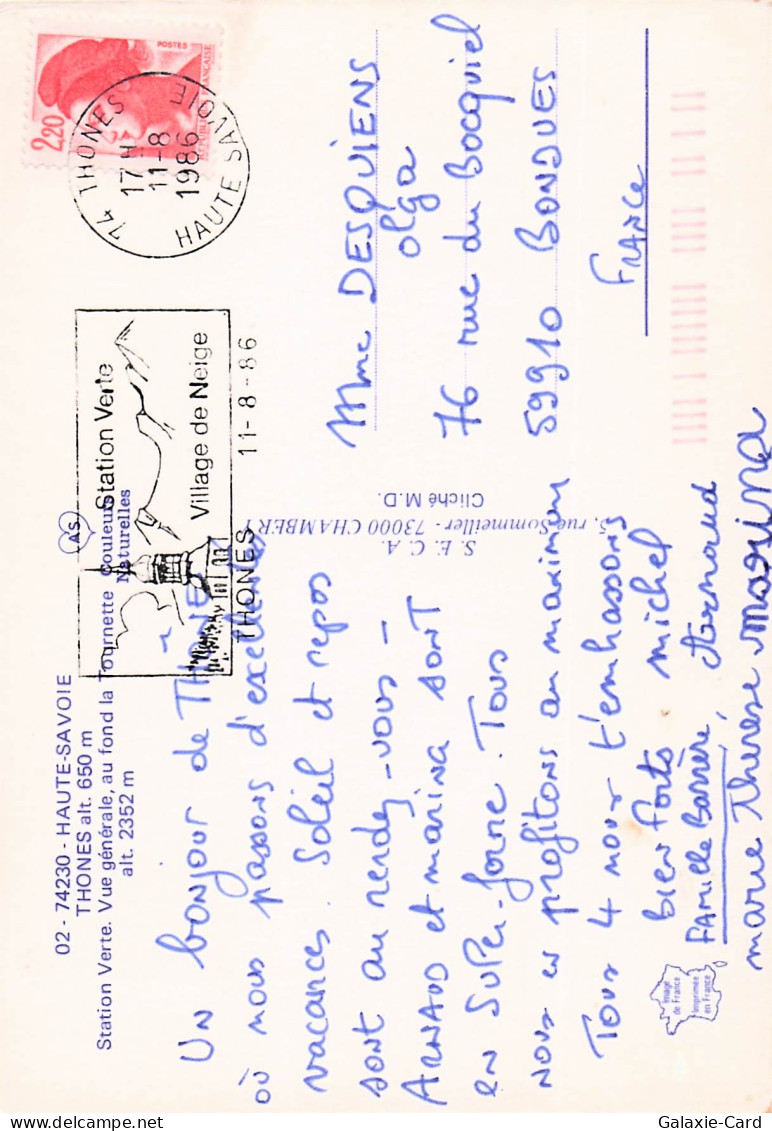 02 - 74230 - HAUTE-SAVOIE
THONES alt. 650 m
Station Verte. Vue générale, au fond la Tournette
alt. 2352 m
Couleurs
Naturelles
A.S.
Un bonjour de THONES
où nous passons d'excellentes
vacances. Soleil et repos
sont au rendez-vous -
ARNAUD et marina SONT
en SUPER-forme. Tous
nous en profitons au maximum
Tous 4 nous t'embrassons
bien forts
michel
FAMille Barrère, Arnaud
marie Therese marina
S.E.C.A.
5, rue Sommeiller - 73000 CHAMBERY
Cliché M.D.
Image
de France
Imprimée
en France
POSTES
2,20
RÉPUBLIQUE FRANÇAISE
74 THONES
17 H
11-8
1986
HAUTE SAVOIE
Station Verte
Village de Neige
THONES
11-8-86
Mme DESQUIENS
Olga
76 rue du Bocquiel
59910 BONDUES
FRANCE
Galaxie-Card